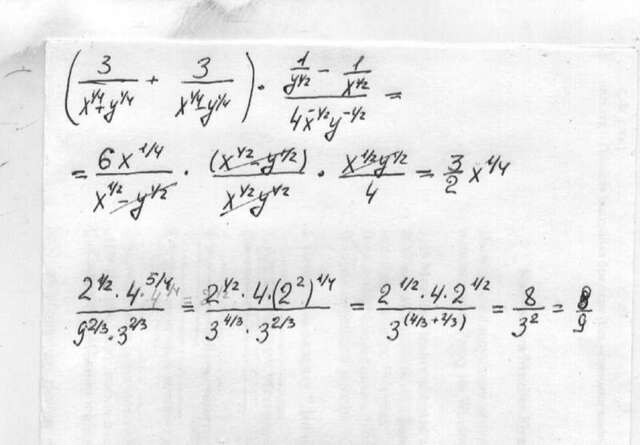 (3/(x^1/4+y^1/4) + 3/(x^1/4-y^1/4)) · (1/y^1/2 - 1/x^1/2)/(4x^-1/2 y^-1/2) =
= 6x^1/4/(x^1/2-y^1/2) · (x^1/2-y^1/2)/(x^1/2 y^1/2) · x^1/2 y^1/2/4 = 3/2 x^1/4
(2^1/2 · 4^5/4)/(9^2/3 · 3^2/3) = (2^1/2 · 4 · (2^2)^1/4)/(3^4/3 · 3^2/3) = (2^1/2 · 4 · 2^1/2)/(3^(4/3+2/3)) = 8/3^2 = 8/9